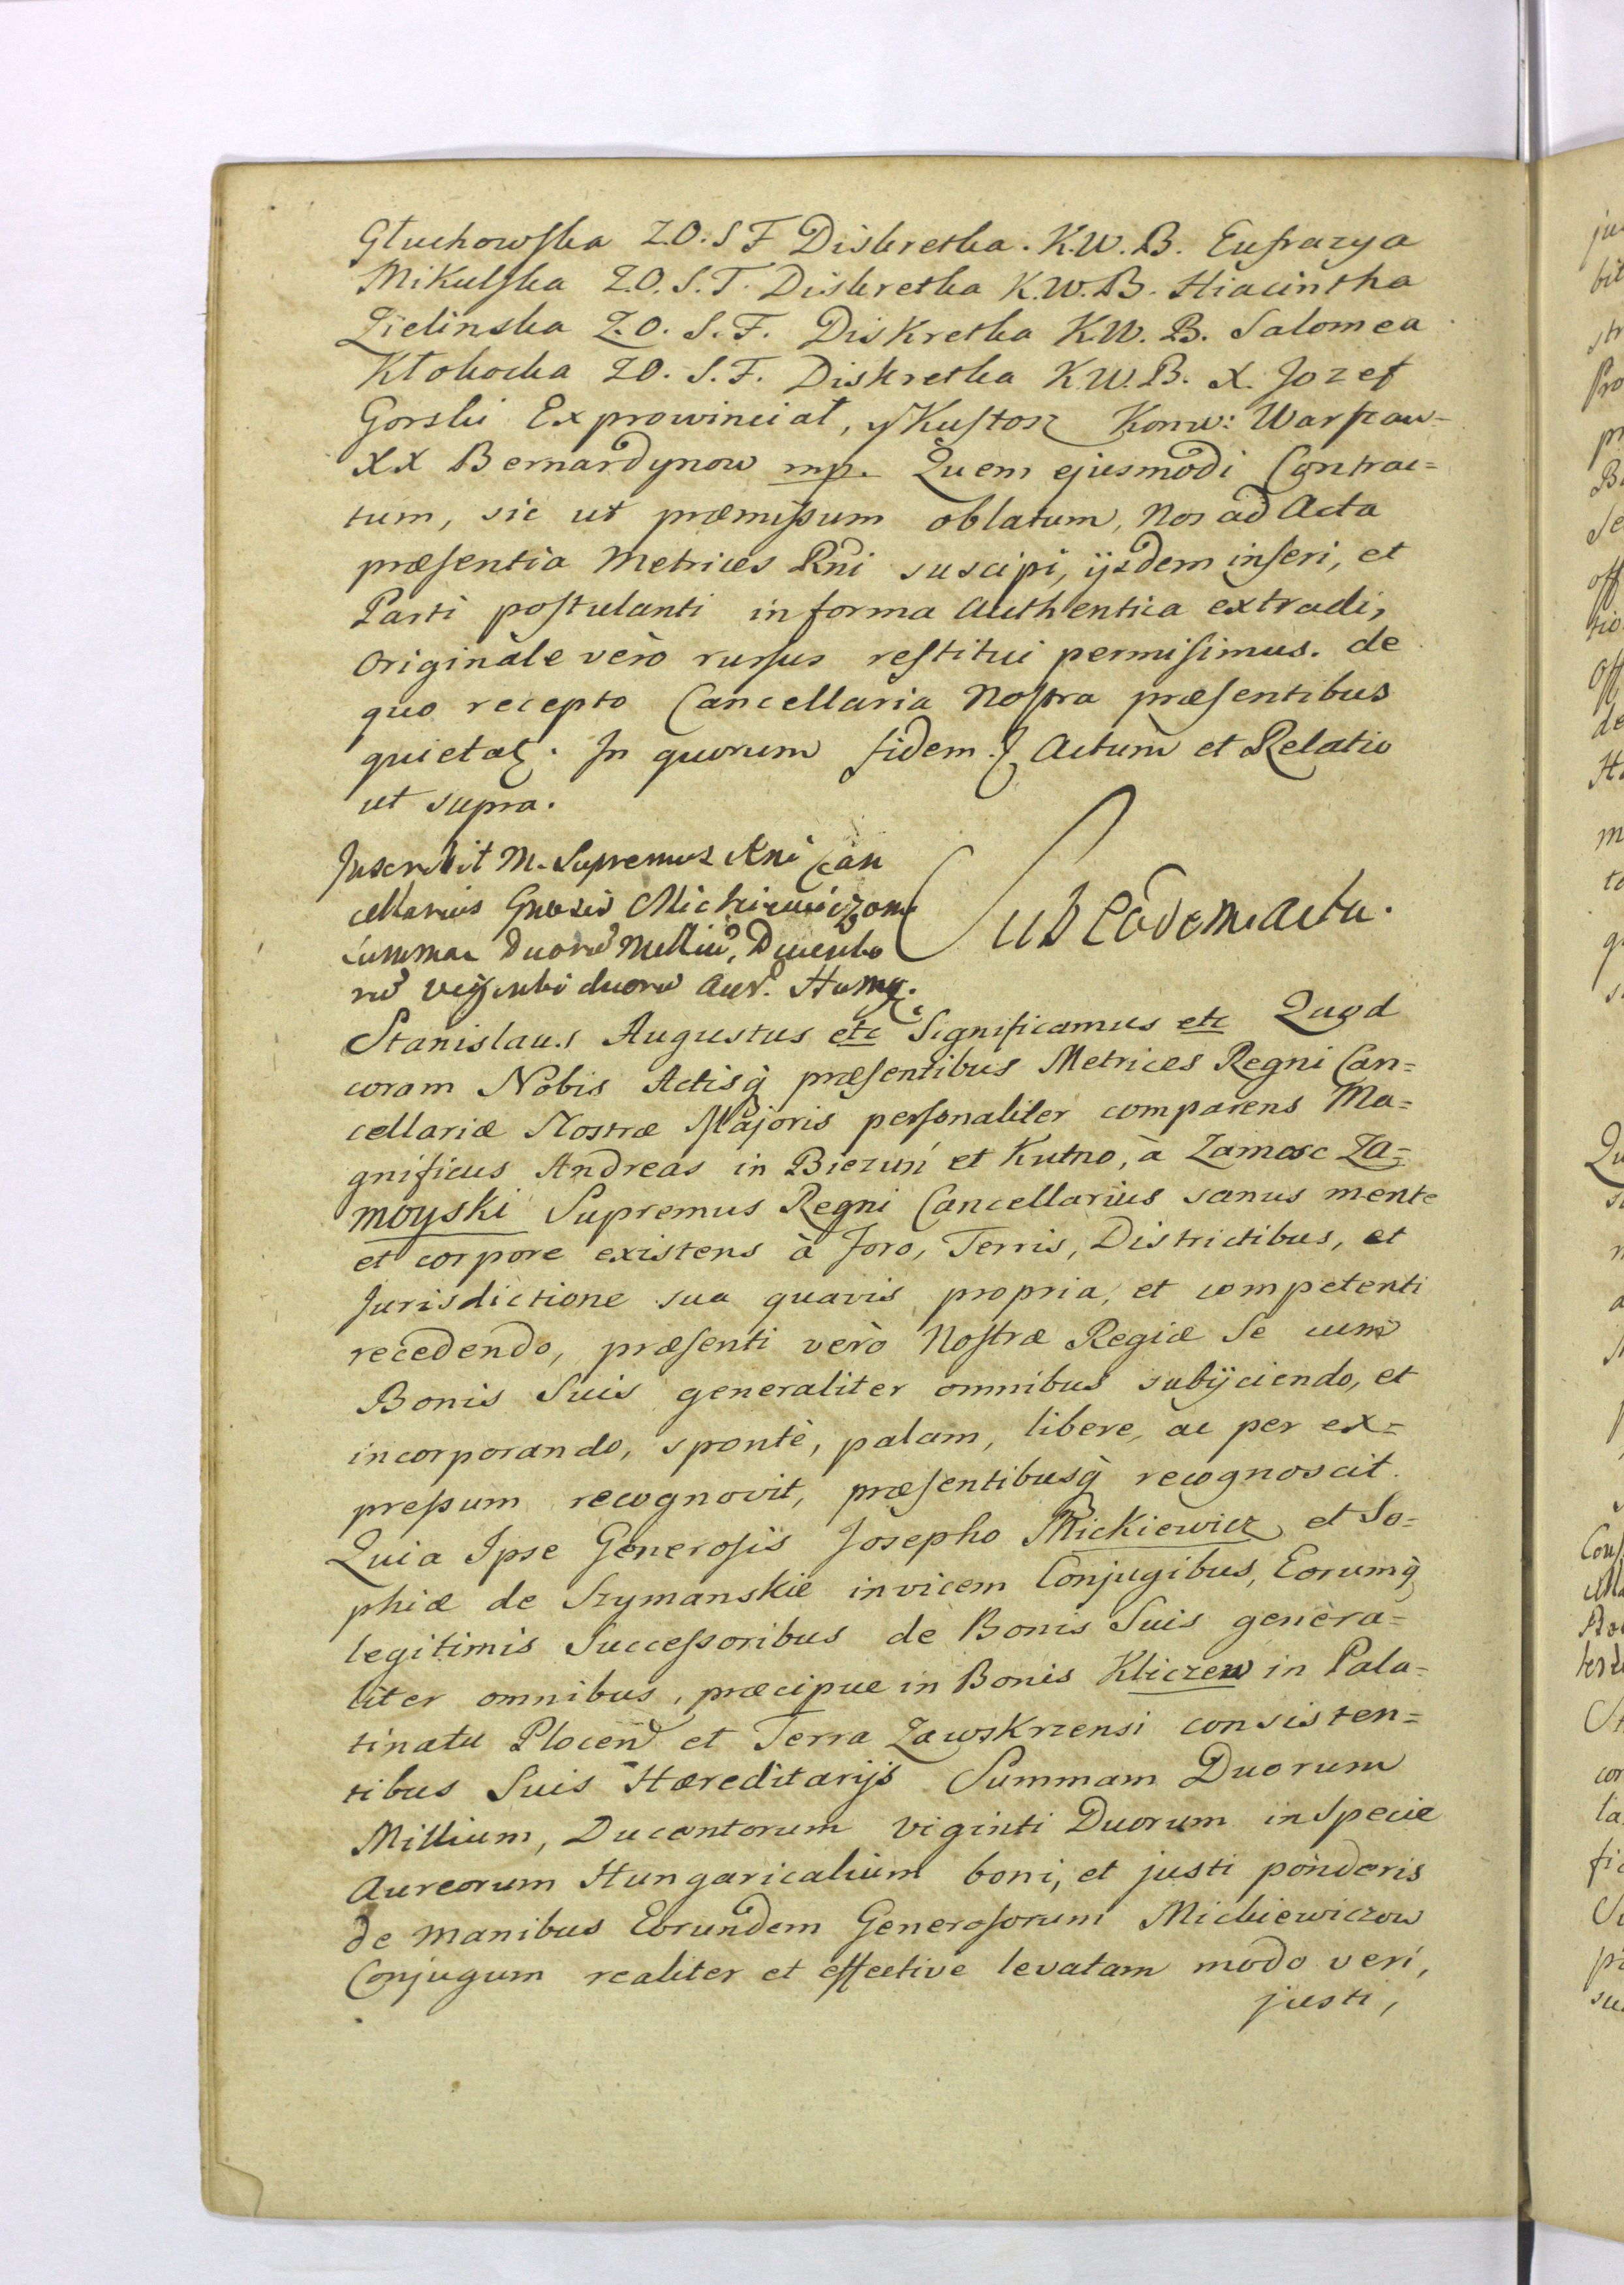 Głuchowska Z.O.S F Diskretka. K.W.B. Eufrazya
Mikulska Z.O.S.F. Diskretka K.W.B. Hiacintha
Zielinska Z.O.S.F. Diskretka K.W.B. Salomea
Kłokocka ZO.S.F. Diskretka K.W.B. X. Jozef
Gorski Exprowinciał, y Kustosz Konw: Warszaw-
XX Bernardynow mp. Quem ejusmodi Contrac=
tum, sic ut præmissum oblatum, Nos ad Acta
præsentia Metrices Rni suscipi, ijsdem inseri, et
Parti postulanti in forma Authentica extradi,
Originale verò rursus restitui permisimus. de
quo recepto Cancellaria Nostra præsentibus
quietat. In quorum fidem. Actum et Relatio
ut supra.
Inscribit M. Supremus Rni Can
cellarius Gnosis Mickiewiczom
summae Duorũ Milliũ, Ducento
rũ viginti duorũ Aur. Hung.
Sub eodem actu.
Stanislaus Augustus etc Significamus etc Quod
coram Nobis Actisq̀ præsentibus Metrices Regni Can=
cellariæ Nostræ Majoris personaliter comparens Ma=
gnificus Andreas in Bieżuń et Kutno, à Zamosc Za=
moyski Supremus Regni Cancellarius sanus mente
et corpore existens à Foro, Terris, Districtibus, et
Jurisdictione sua quavis propria, et competenti
recedendo, præsenti verò Nostræ Regiæ Se cum
Bonis Suis generaliter omnibus subijciendo, et
incorporando, spontè, palam, libere, ac per ex=
pressum recognovit, præsentibusq̀ recognoscit.
Quia Ipse Generosis Josepho Mickiewicz et So=
phiæ de Szymanskie invicem Conjugibus, Eorumq̀
legitimis Successoribus de Bonis Suis genera=
liter omnibus, præcipue in Bonis Kliczew in Pala=
tinatu Plocen̄ et Terra Zawskrzensi consisten=
tibus Suis Hæreditarijs Summam Duorum
Millium, Ducentorum viginti Duorum in Specie
Aureorum Hungaricalium boni, et justi ponderis
de manibus Eorundem Generosorum Mickiewiczow
Conjugum realiter et effective levatam modo veri,
justi,